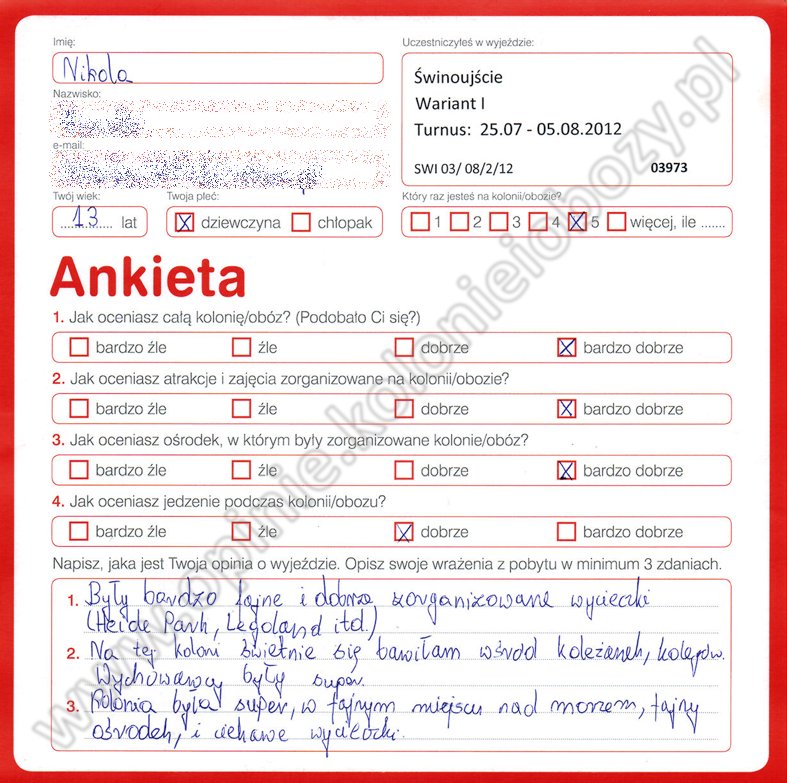 Imię:
Nikola
Uczestniczyłeś w wyjeździe:
Świnoujście
Wariant I
Turnus: 25.07 - 05.08.2012
SWI 03/ 08/2/12 03973
Nazwisko:
e-mail:
Twój wiek:
13 lat
Twoja płeć:
X dziewczyna chłopak
Który raz jesteś na kolonii/obozie?
1 2 3 4 X 5 więcej, ile .......
Ankieta
1. Jak oceniasz całą kolonię/obóz? (Podobało Ci się?)
bardzo źle źle dobrze X bardzo dobrze
2. Jak oceniasz atrakcje i zajęcia zorganizowane na kolonii/obozie?
bardzo źle źle dobrze X bardzo dobrze
3. Jak oceniasz ośrodek, w którym były zorganizowane kolonie/obóz?
bardzo źle źle dobrze X bardzo dobrze
4. Jak oceniasz jedzenie podczas kolonii/obozu?
bardzo źle źle X dobrze bardzo dobrze
Napisz, jaka jest Twoja opinia o wyjeździe. Opisz swoje wrażenia z pobytu w minimum 3 zdaniach.
1. Były bardzo fajne i dobrze zorganizowane wycieczki
(Heide Park, Legoland itd.)
2. Na tej koloni świetnie się bawiłam wśród koleżanek, kolegów.
Wychowawcy były super.
3. Kolonia była super, w fajnym miejscu nad morzem, fajny
ośrodek, i ciekawe wycieczki.
www.opinie.kolonieiobozy.pl